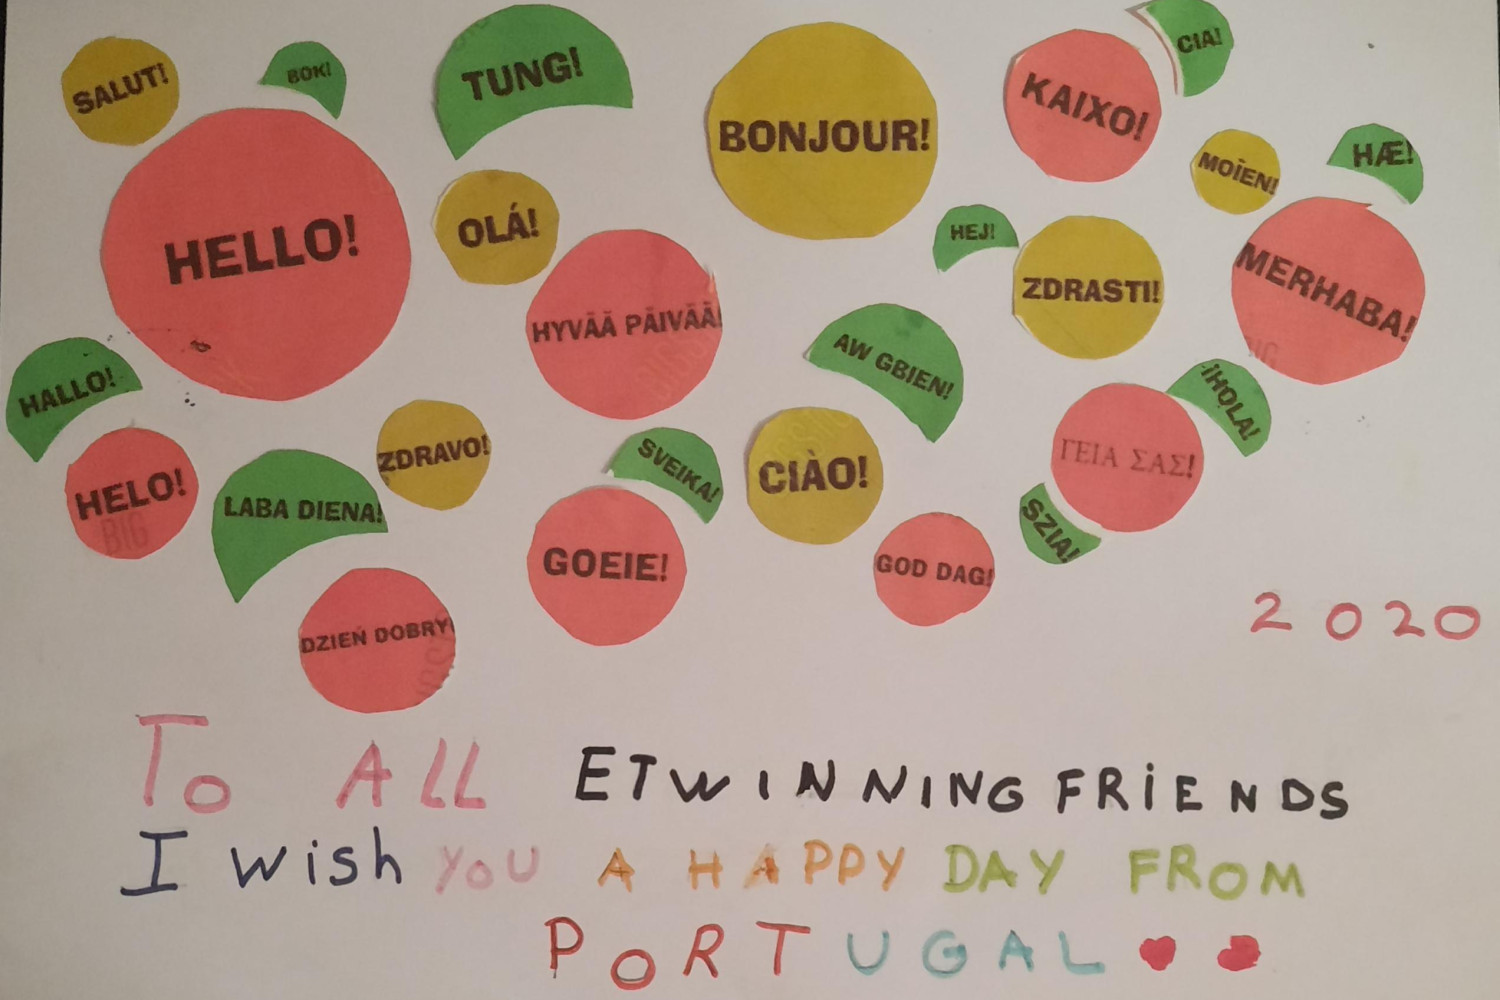 SALUT!
BOK!
TUNG!
BONJOUR!
KAIXO!
CIA!
HELLO!
OLÁ!
MOÏEN!
HÆ!
HYVÄÄ PÄIVÄÄ!
HEJ!
ZDRASTI!
MERHABA!
HALLO!
AW GBIEN!
¡HOLA!
HELO!
BIG
LABA DIENA!
ZDRAVO!
SVEIKA!
CIÀO!
ΓΕΙΑ ΣΑΣ!
SZIA!
GOEIE!
GOD DAG!
DZIEŃ DOBRY!
2020
To ALL ETWINNING FRiENDS
I wish you A HAPPY DAY FROM
PORTUGAL